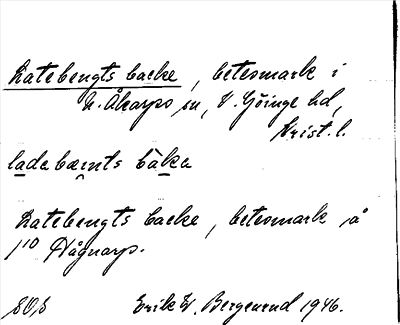 Latebengts backe, betesmark i
N. Åkarps sn, V. Göinge hd,
Krist. l.
ladabænts bàka
Latebengts backe, betesmark å
1/10 Hågnarp.
SOS Erik W. Bergenrud 1946.